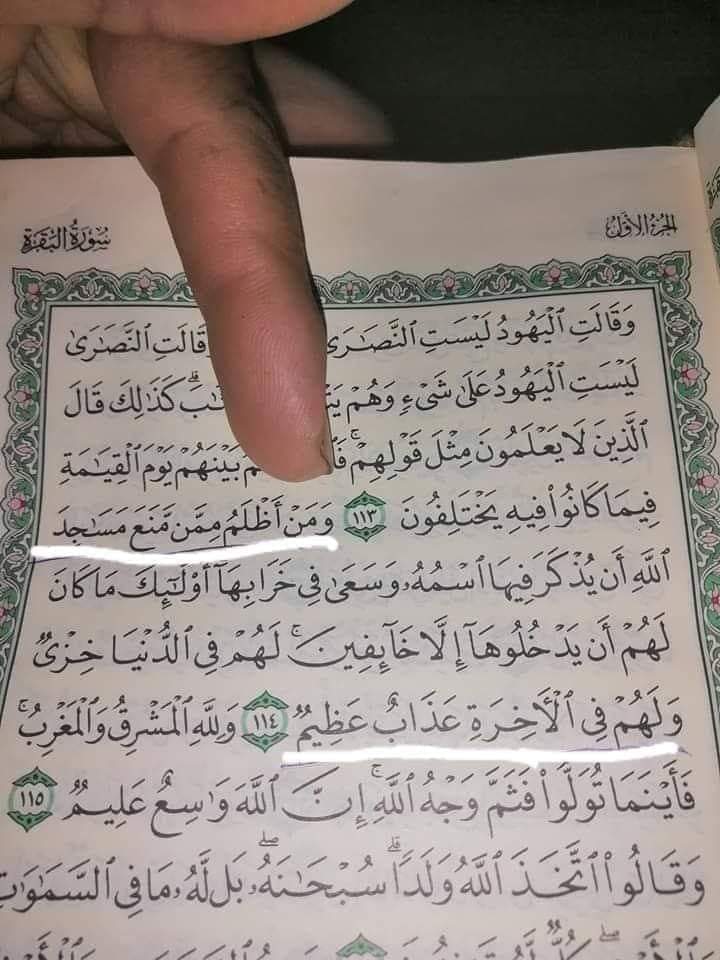 الجزء الأول
سورة البقرة
وَقَالَتِ ٱلْيَهُودُ لَيْسَتِ ٱلنَّصَٰرَىٰ وَقَالَتِ ٱلنَّصَٰرَىٰ
لَيْسَتِ ٱلْيَهُودُ عَلَىٰ شَىْءٍ وَهُمْ كَذَٰلِكَ قَالَ
ٱلَّذِينَ لَا يَعْلَمُونَ مِثْلَ قَوْلِهِمْ ۚ بَيْنَهُمْ يَوْمَ ٱلْقِيَٰمَةِ
فِيمَا كَانُوا۟ فِيهِ يَخْتَلِفُونَ ١١٣ وَمَنْ أَظْلَمُ مِمَّن مَّنَعَ مَسَٰجِدَ
ٱللَّهِ أَن يُذْكَرَ فِيهَا ٱسْمُهُۥ وَسَعَىٰ فِى خَرَابِهَآ أُو۟لَٰٓئِكَ مَا كَانَ
لَهُمْ أَن يَدْخُلُوهَآ إِلَّا خَآئِفِينَ ۚ لَهُمْ فِى ٱلدُّنْيَا خِزْىٌ
وَلَهُمْ فِى ٱلْءَاخِرَةِ عَذَابٌ عَظِيمٌ ١١٤ وَلِلَّهِ ٱلْمَشْرِقُ وَٱلْمَغْرِبُ ۚ
فَأَيْنَمَا تُوَلُّوا۟ فَثَمَّ وَجْهُ ٱللَّهِ ۚ إِنَّ ٱللَّهَ وَٰسِعٌ عَلِيمٌ ١١٥
وَقَالُوا۟ ٱتَّخَذَ ٱللَّهُ وَلَدًا ۗ سُبْحَٰنَهُۥ ۖ بَل لَّهُۥ مَا فِى ٱلسَّمَٰوَٰتِ